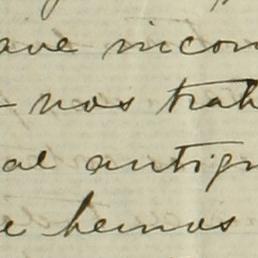 ave incon
nos trat
al antigu
e hemos